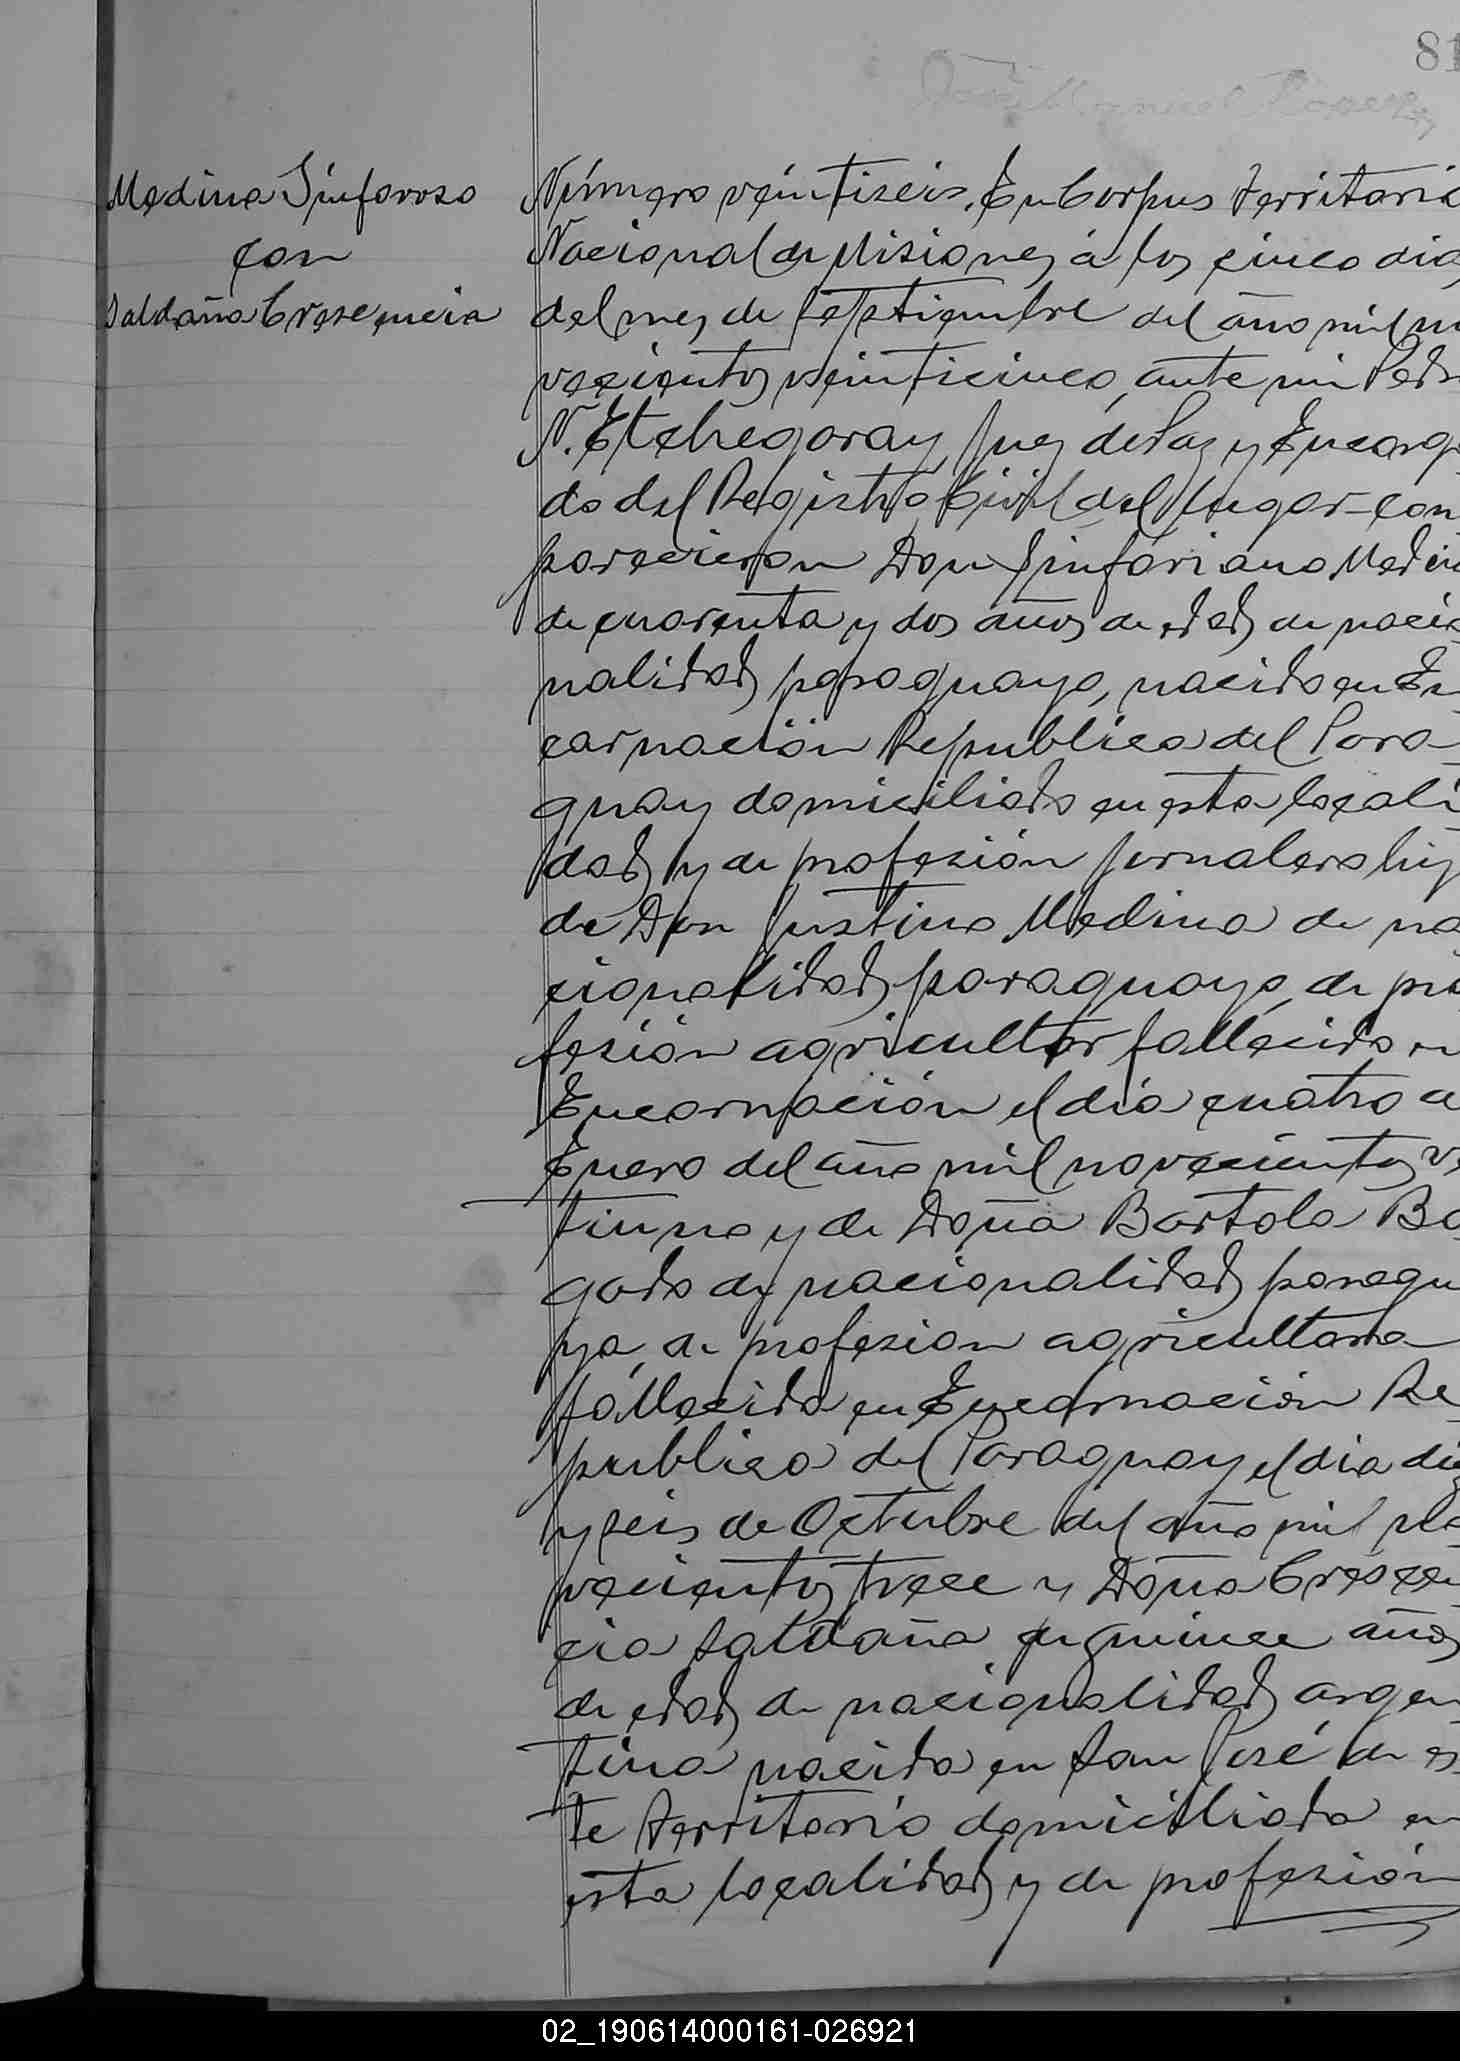 81
José Manuel
Medina Sinforoso
con
Saldaña Cresencia
Número veintiseis, En Corpus Territorio
Nacional de Misiones á los cinco dias
del mes de Septiembre del año mil no
vecientos veinticinco, ante mi Pedro
N. Etchegoray, Juez de Paz y Encarga
do del Registro Civil del lugar com
parecieron Don Sinforiano Medina
de cuarenta y dos años de edad, de nacio
nalidad paraguayo, nacido en En
carnación Republica del Para
guay domiciliado en esta locali
dad y de profesión jornalero hijo
de Don Justino Medina de na
cionalidad paraguayo, de pro
fesión agricultor fallecido en
Encarnación el dia cuatro de
Enero del año mil novecientos ve
tiuno y de Doña Bartola Bo
gado de nacionalidad paragua
ya, de profesion agricultora
fallecida en Encarnación Re
publica del Paraguay el dia diez
y seis de Octubre del año mil no
vecientos trece y Doña Crescen
cia Saldaña de quince años
de edad, de nacionalidad argen
tina nacida en San José de es
te territorio domiciliada en
esta localidad y de profesión
02_190614000161-026921